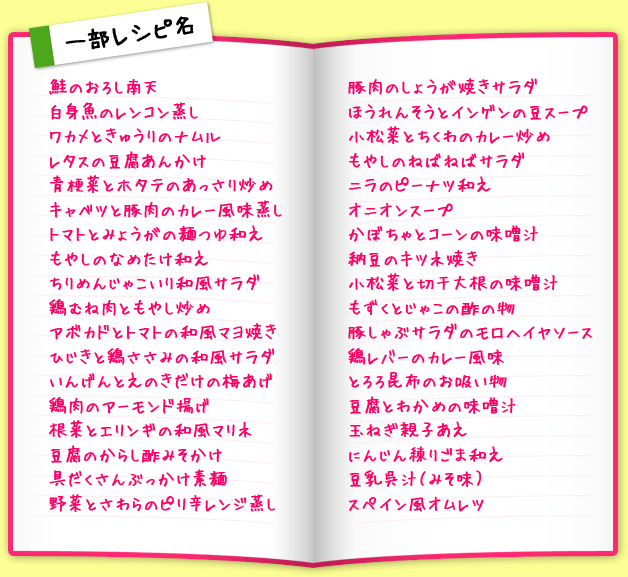 一部レシピ名
鮭のおろし南天
白身魚のレンコン蒸し
ワカメときゅうりのナムル
レタスの豆腐あんかけ
青梗菜とホタテのあっさり炒め
キャベツと豚肉のカレー風味蒸し
トマトとみょうがの麺つゆ和え
もやしのなめたけ和え
ちりめんじゃこいり和風サラダ
鶏むね肉ともやし炒め
アボカドとトマトの和風マヨ焼き
ひじきと鶏ささみの和風サラダ
いんげんとえのきだけの梅あげ
鶏肉のアーモンド揚げ
根菜とエリンギの和風マリネ
豆腐のからし酢みそかけ
具だくさんぶっかけ素麺
野菜とさわらのピリ辛レンジ蒸し
豚肉のしょうが焼きサラダ
ほうれんそうとインゲンの豆スープ
小松菜とちくわのカレー炒め
もやしのねばねばサラダ
ニラのピーナツ和え
オニオンスープ
かぼちゃとコーンの味噌汁
納豆のキツネ焼き
小松菜と切干大根の味噌汁
もずくとじゃこの酢の物
豚しゃぶサラダのモロヘイヤソース
鶏レバーのカレー風味
とろろ昆布のお吸い物
豆腐とわかめの味噌汁
玉ねぎ親子あえ
にんじん練りごま和え
豆乳呉汁(みそ味)
スペイン風オムレツ